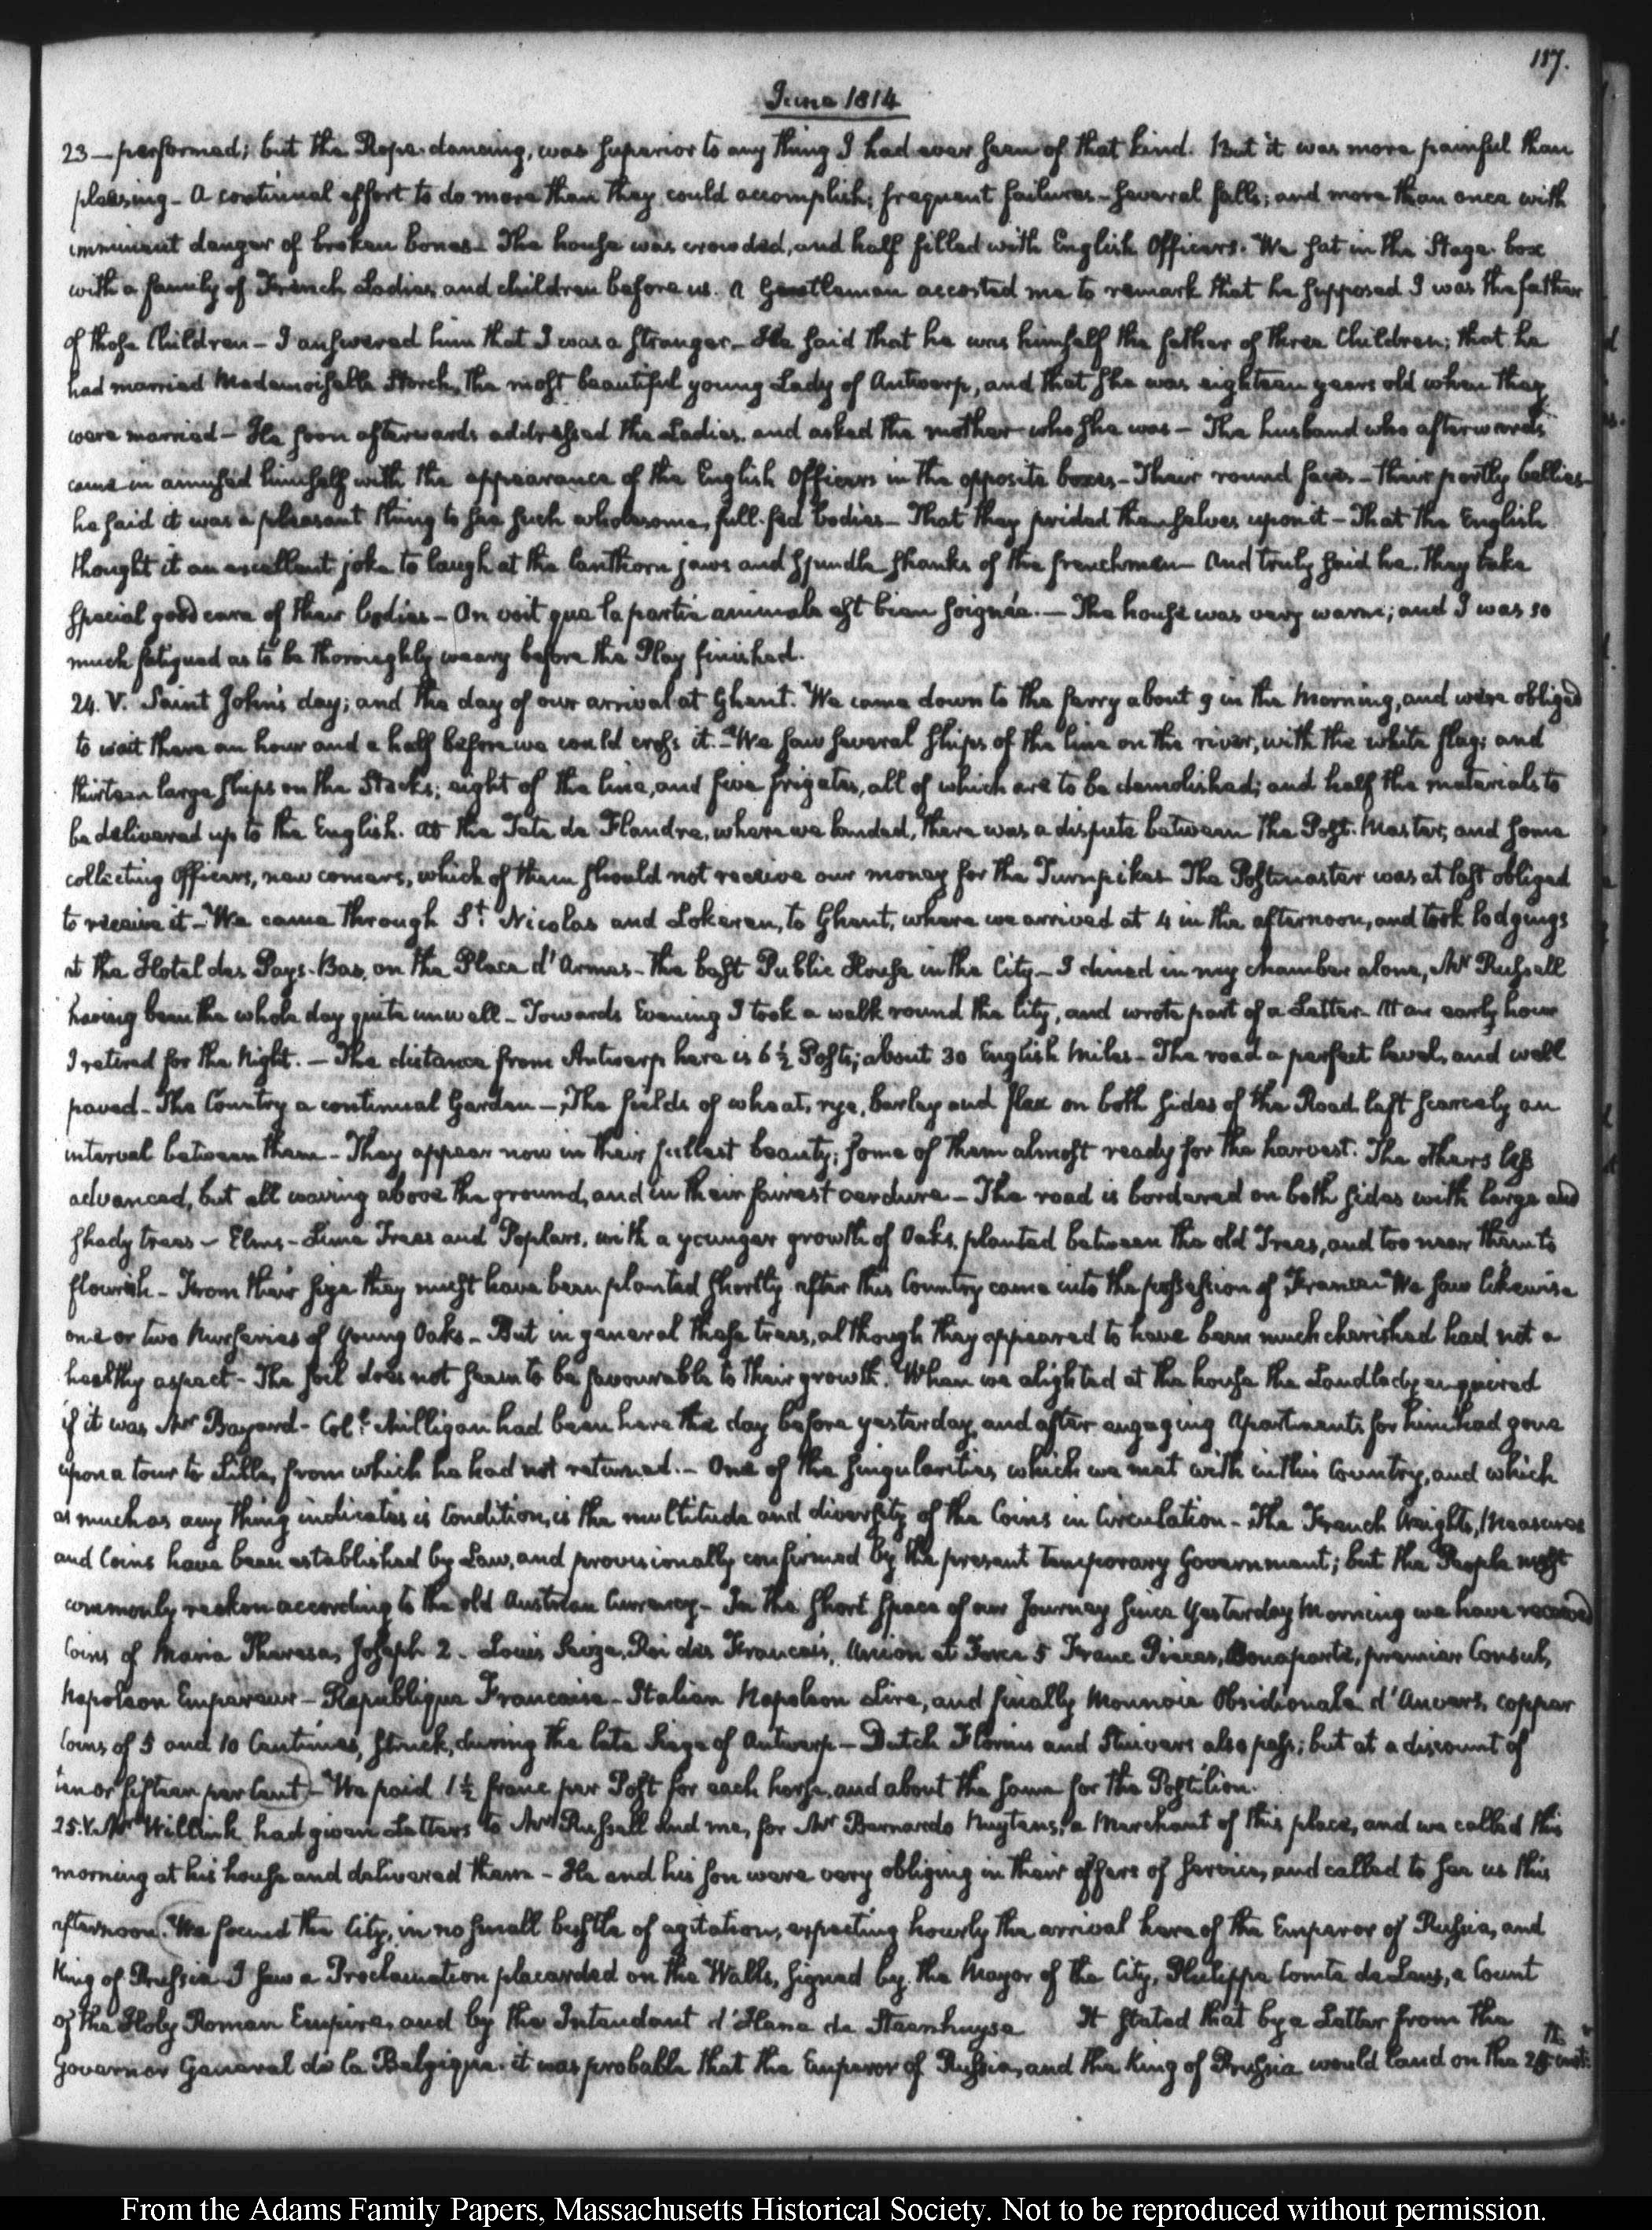 117.
June 1814
23 — performed; but the Rope-dancing, was superior to any thing I had ever seen of that kind. But it was more painful than
pleasing — A continual effort to do more than they could accomplish; frequent failures — several falls; and more than once with
imminent danger of broken bones — The house was crowded, and half filled with English Officers. We sat in the Stage-box
with a family of French Ladies and children before us. A Gentleman accosted me to remark that he supposed I was the father
of those Children — I answered him that I was a stranger — He said that he was himself the father of three Children; that he
had married Mademoiselle Storch, the most beautiful young Lady of Antwerp, and that she was eighteen years old when they
were married — He soon afterwards addressed the Ladies, and asked the mother who she was — The husband who afterwards
came in amused himself with the appearance of the English Officers in the opposite boxes — Their round faces — their portly bellies —
he said it was a pleasant thing to see such wholesome, full-fed bodies — That they prided themselves upon it — That the English
thought it an excellent joke to laugh at the lanthorn jaws and spindle shanks of the frenchmen — And truly said he, they take
special good care of their bodies — On voit que la partie animale est bien soignée. — The house was very warm; and I was so
much fatigued as to be thoroughly weary before the Play finished.
24. V. Saint John's day; and the day of our arrival at Ghent. We came down to the ferry about 9 in the Morning, and were obliged
to wait there an hour and a half before we could cross it. — We saw several ships of the line on the river, with the white flag; and
thirteen large ships on the Stocks; eight of the line, and five frigates, all of which are to be demolished; and half the materials to
be delivered up to the English. At the Tete de Flandre, where we landed, there was a dispute between the Post-Master, and some
collecting Officers, new comers, which of them should not receive our money for the Turnpikes — The Postmaster was at last obliged
to receive it — We came through St. Nicolas and Lokeren, to Ghent, where we arrived at 4 in the afternoon, and took lodgings
at the Hotel des Pays-Bas, on the Place d'Armes — the best Public House in the City — I dined in my chamber alone, Mr Russell
having been the whole day quite unwell — Towards Evening I took a walk round the City, and wrote part of a Letter — At an early hour
I retired for the Night. — The distance from Antwerp here is 6 1/2 Posts; about 30 English Miles — The road a perfect level, and well
paved — The Country a continual Garden — The fields of wheat, rye, barley and flax on both sides of the Road left scarcely an
interval between them — They appear now in their fullest beauty; some of them almost ready for the harvest. The others less
advanced, but all waving above the ground, and in their fairest verdure — The road is bordered on both sides with large and
shady trees — Elms — Lime Trees and Poplars, with a younger growth of Oaks, planted between the old Trees, and too near them to
flourish — From their size they must have been planted shortly after this Country came into the possession of France — We saw likewise
one or two Nurseries of young Oaks — But in general these trees, although they appeared to have been much cherished had not a
healthy aspect — The soil does not seem to be favourable to their growth. When we alighted at the house the Landlady enquired
if it was Mr Bayard — Coll. Milligan had been here the day before yesterday, and after engaging Apartments for him had gone
upon a tour to Lille, from which he had not returned. — One of the singularities which we met with in this Country, and which
as much as any thing indicates is Condition, is the multitude and diversity of the Coins in Circulation — The French Weights, Measures
and Coins have been established by Law, and provisionally confirmed by the present temporary Government; but the People most
commonly reckon according to the old Austrian Currency — In the short space of our Journey since Yesterday Morning we have received
Coins of Maria Theresa, Joseph 2 — Louis Seize, Roi des Francais, Union et Force 5 Franc Pieces, Bonaparte, premier Consul,
Napoleon Empereur — Republique Francaise — Italian Napoleon Lire, and finally Monnoie Obsidionale d'Anvers, copper
Coins of 5 and 10 Centimes, struck, during the late Siege of Antwerp — Dutch Florins and Stuivers also pass; but at a discount of
ten or fifteen per Cent — We paid 1 1/2 franc per Post for each horse, and about the same for the Postilion.
25. V. Mr Willink had given Letters to Mr Russell and me, for Mr Bernardo Nuytens, a Merchant of this place, and we called this
morning at his house and delivered them — He and his son were very obliging in their offers of service, and called to see us this
afternoon. We found the City, in no small bustle of agitation, expecting hourly the arrival here of the Emperor of Russia, and
King of Prussia — I saw a Proclamation placarded on the Walls, signed by the Mayor of the City, Philippe Comte de Lens, a Count
of the Holy Roman Empire, and by the Intendant d'Hane de Steenhuyse It stated that by a Letter from the
Governor General de la Belgique it was probable that the Emperor of Russia, and the King of Prussia would land on the inst:
From the Adams Family Papers, Massachusetts Historical Society. Not to be reproduced without permission.